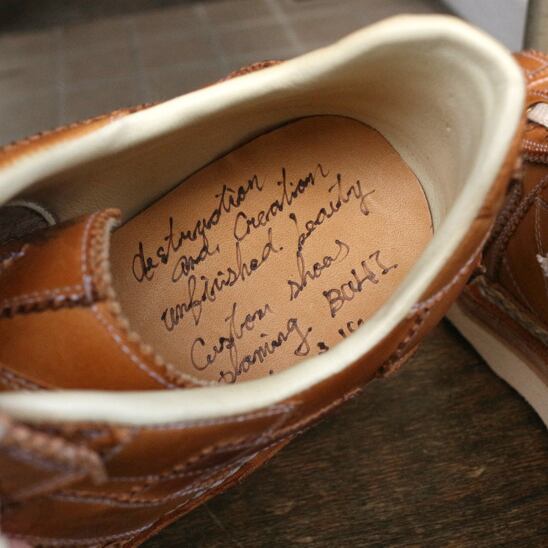 destruction
and, Creation
unfinished. beauty
Custom shoes
BOHI